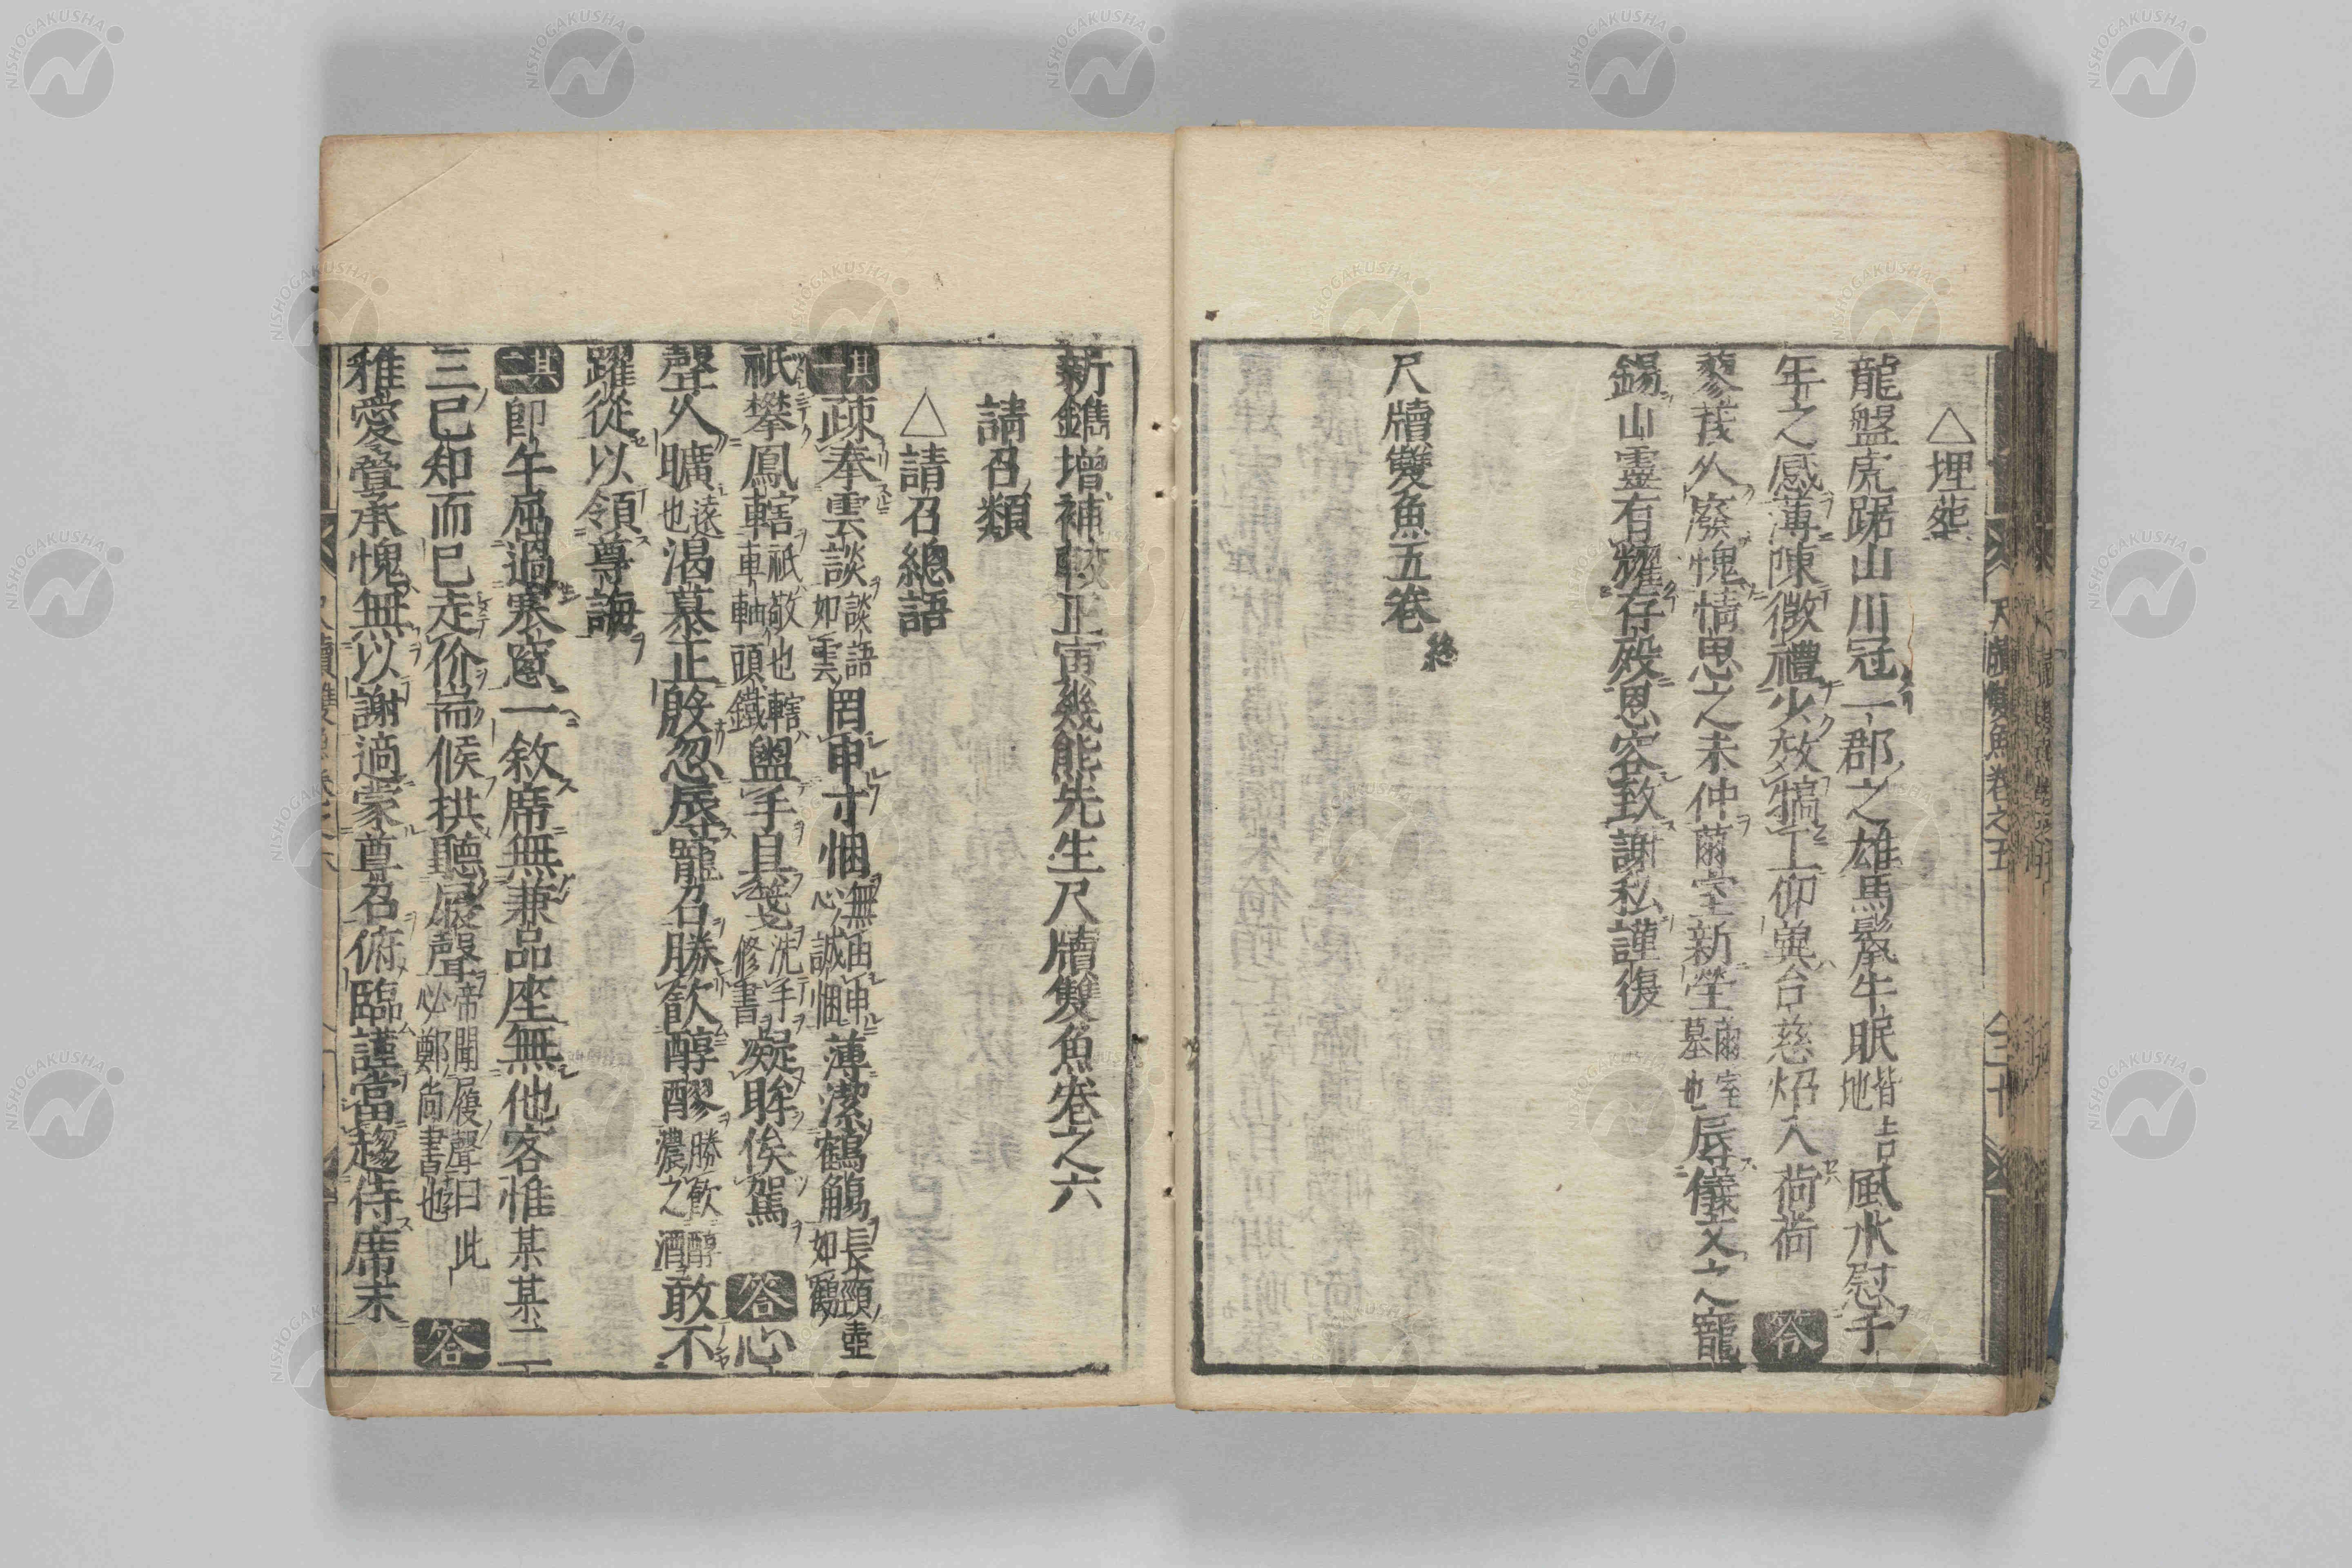 △埋葬
龍盤虎踞山川冠一郡之雄馬鬣牛眠皆吉地風水慰千
年之感薄陳微禮少效犒工仰輿台慈炤入荷荷 答
蓼莪久廢愧情思之未伸薾室新塋薾室墓也辱儀文之寵
錫山靈有耀存歿恩容致謝私謹復
尺牘雙魚五卷終
尺牘雙魚卷之五
新鐫增補較正寅幾熊先生尺牘雙魚卷之六
請召類
△請召總語
其一疎奉雲談談語如雲罔申寸悃無由申心誠悃薄潔鶴觴長頸壺如鶴
祇攀鳳轄祇敬也轄車軸頭鐵盥手具箋洗手修書凝眸俟駕 答心
聲久曠遠也渴慕正殷忽辱寵召勝飲醇醪勝飲醇濃之酒敢不
躍從以領尊誨
其二即午屈過寒窓一敘席無兼品座無他客惟某某二
三已知而已走价耑候拱聽屐聲帝聞履聲曰此必鄭尚書也 答
稚愛疊承愧無以謝適蒙尊召俯臨謹當趨侍席末